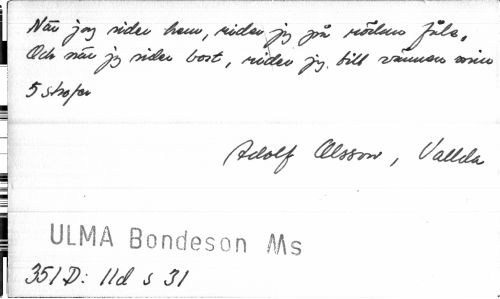 När jag rider hem, rider jag på rödan fåle,
Och när jg rider bort, rider jg till vännen min
5 strofer
Adolf Olsson, Vallda
ULMA Bondeson Ms
351 D: 11d s 31